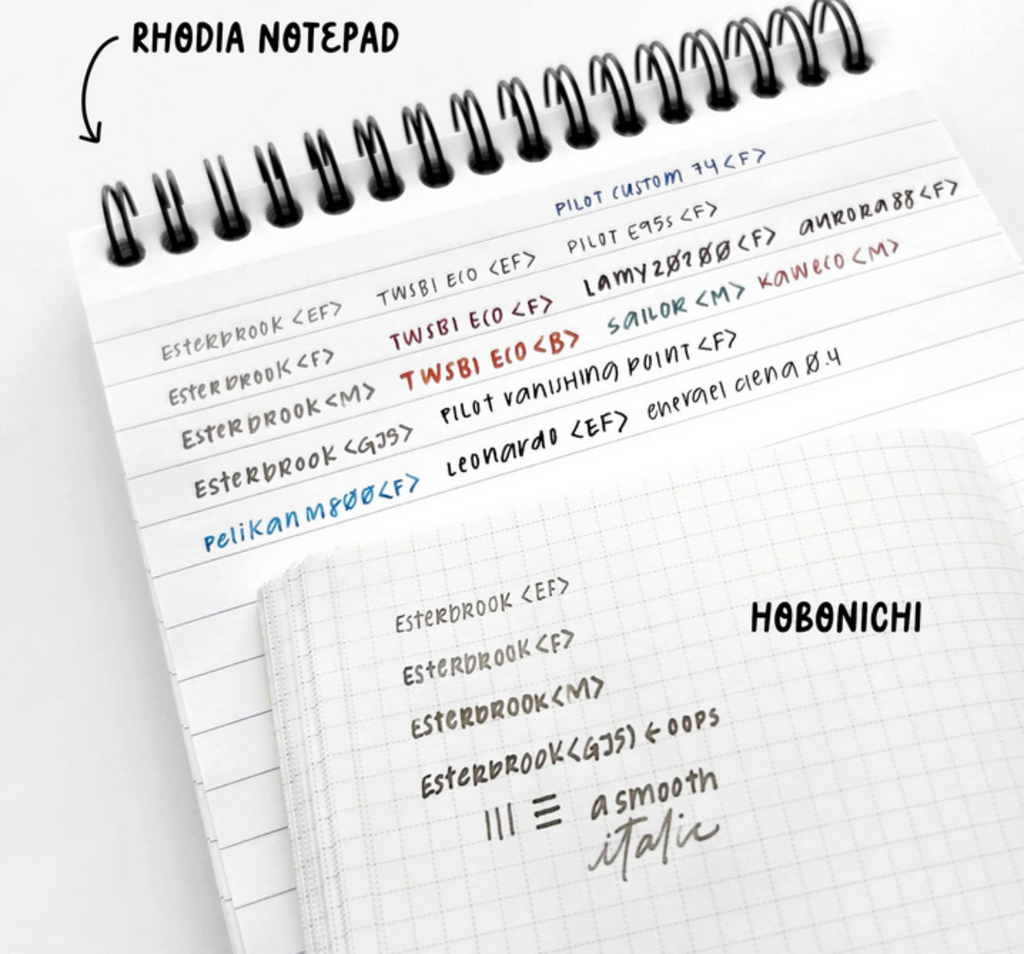 RHODIA NOTEPAD
PILOT CUSTOM 74 <F>
Esterbrook <EF> TWSBI ECO <EF> PILOT E95s <F>
Esterbrook <F> TWSBI ECO <F> Lamy 2020 <F> aurora 88 <F>
Esterbrook <M> TWSBI ECO <B> sailor <M> kaweco <M>
Esterbrook <GJS> PILOT vanishing point <F>
pelikan M800 <F> Leonardo <EF> energel clena 0.4
HOBONICHI
Esterbrook <EF>
Esterbrook <F>
Esterbrook <M>
Esterbrook <GJS) ← oops
a smooth
italic